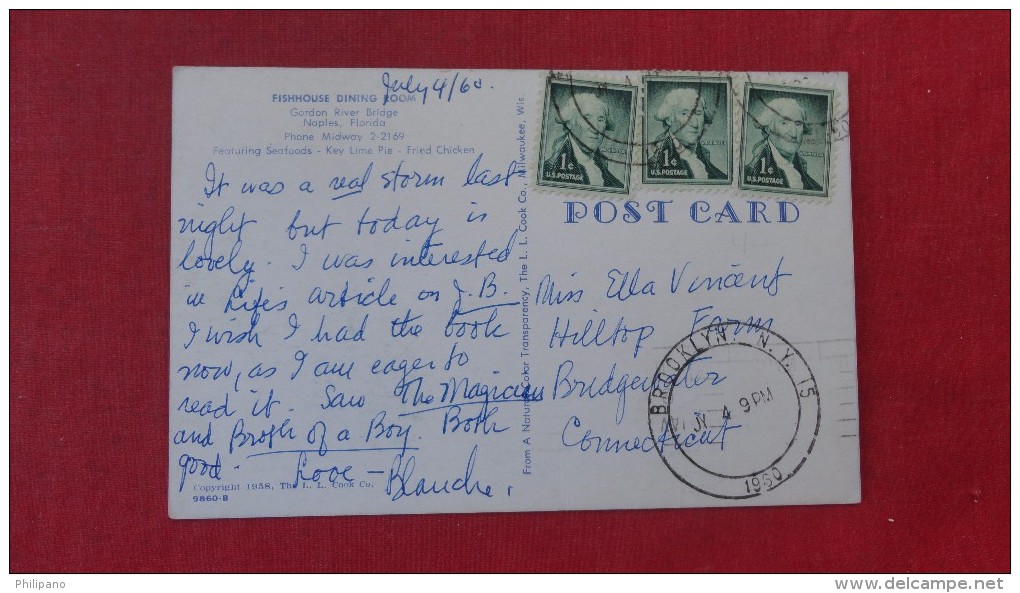 July 4/60.
FISHHOUSE DINING ROOM
Gordon River Bridge
Naples, Florida
Phone Midway 2-2169
Featuring Seafoods - Key Lime Pie - Fried Chicken
It was a real storm last
night but today is
lovely. I was interested
in Life's article on J.B.
I wish I had the book
now, as I am eager to
read it. Saw The Magician
and Broth of a Boy. Both
good. Love -
Blanche.
Copyright 1958, The L. L. Cook Co.
9860-B
From A Natural Color Transparency, The L. L. Cook Co., Milwaukee, Wis.
1¢
U.S. POSTAGE
1¢
U.S. POSTAGE
1¢
U.S. POSTAGE
POST CARD
Miss Ella Vincent
Hilltop Farm
Bridgewater
Connecticut
BROOKLYN, N.Y. 15
JY 4 9 PM
1960
Philipano
www.delcampe.net